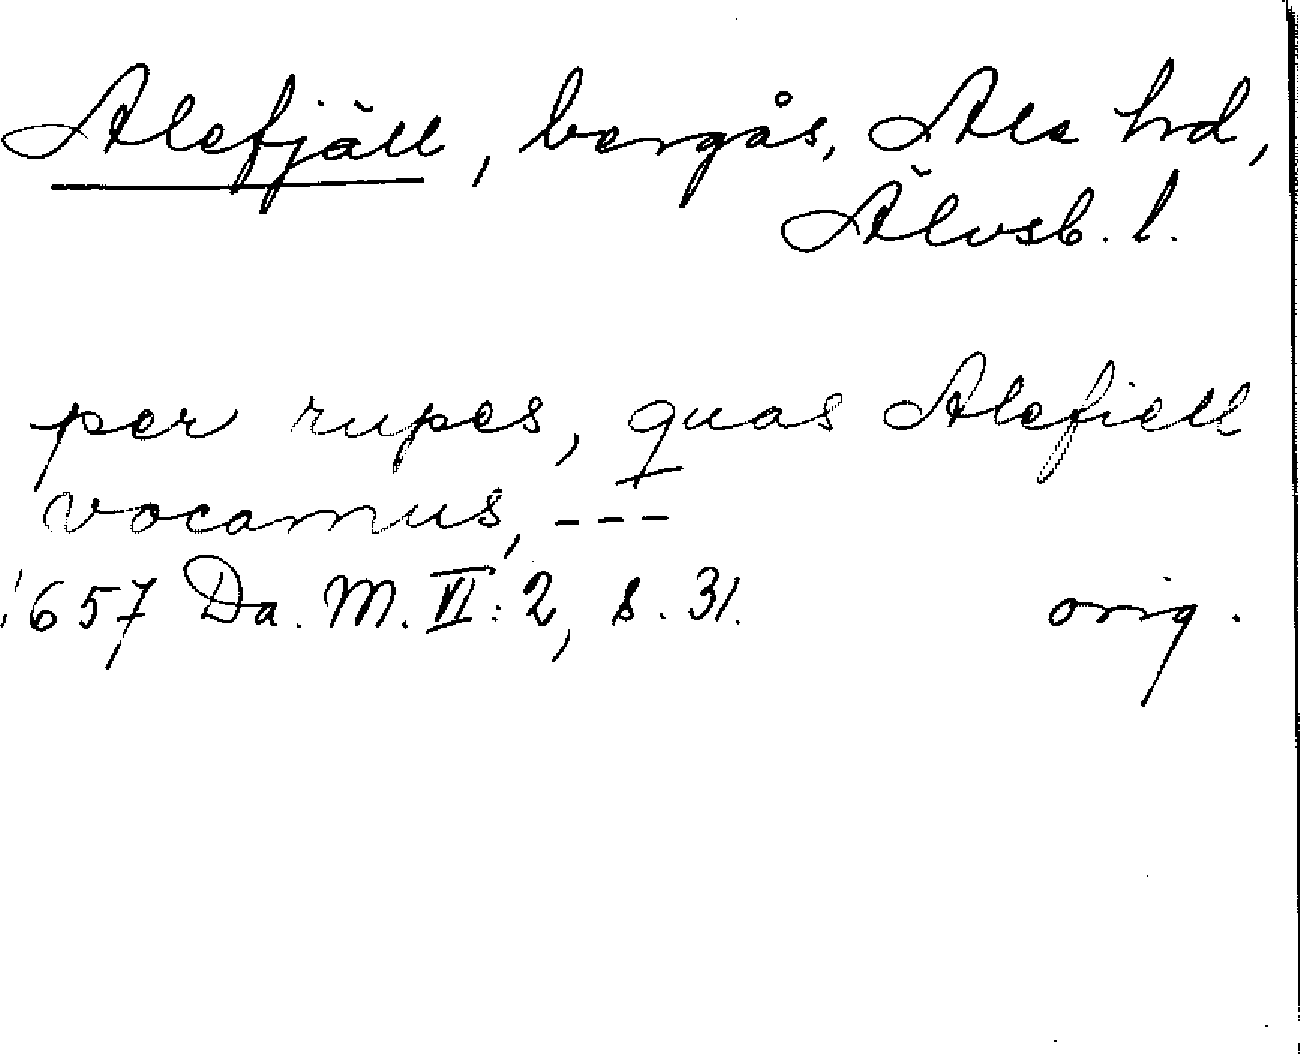 Alefjäll, bergås, Ale hd,
Älvsb. l.
per rupes, quas Alefiell
vocamus, ---
1657 Da. M. VI: 2, s. 31. orig.